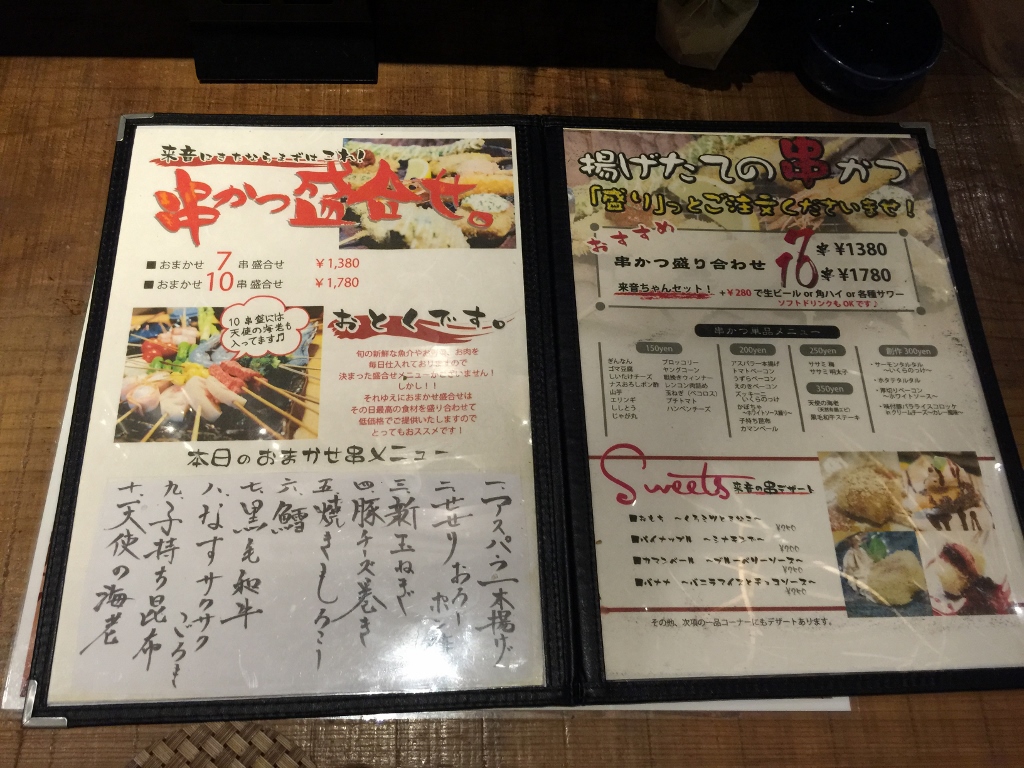 来音にきたならまずはこれ!
串かつ盛合せ。
■おまかせ 7 串盛合せ ￥1,380
■おまかせ 10 串盛合せ ￥1,780
10串盛には
天使の海老も
入ってます♫
おとくです。
旬の新鮮な魚介やお野菜、お肉を
毎日仕入れておりますので
決まった盛合せメニューがございません!
しかし!!
それゆえにおまかせ盛合せは
その日最高の食材を盛り合わせて
低価格でご提供いたしますので
とってもおススメです!
本日のおまかせ串メニュー
一、アスパラ一本揚げ
二、せせりおろしポン酢
三、新玉ねぎ
四、豚チーズ巻き
五、焼きしろこう
六、鱈
七、黒毛和牛
八、なすサクサク
九、子持ち昆布
十、天使の海老
揚げたての串かつ
「盛り」っとご注文くださいませ!
おすすめ
串かつ盛り合わせ
7本 ¥1380
10本 ¥1780
来音ちゃんセット! +￥280で生ビール or 角ハイ or 各種サワー
ソフトドリンクもOKです♪
串かつ単品メニュー
150yen
ぎんなん
ゴマ豆腐
しいたけチーズ
ナスおろしポン酢
山芋
エリンギ
ししとう
じゃが丸
ブロッコリー
ヤングコーン
粗挽きウィンナー
レンコン肉詰め
玉ねぎ(ペコロス)
プチトマト
ハンペンチーズ
200yen
アスパラ一本揚げ
トマトベーコン
うずらベーコン
えのきベーコン
ズッキーニ
いくらのっけ
かぼちゃ
～ホワイトソース掛け～
子持ち昆布
カマンベール
250yen
ササミ 梅
ササミ 明太子
350yen
天使の海老
黒毛和牛ステーキ
創作 300yen
・サーモンタルタル
～いくらのっけ～
・ホタテタルタル
・厚切りベーコン
～ホワイトソース～
・味付豚バラライスコロッケ
inクリームチーズ～カレー風味～
Sweets 来音の串デザート
■おもち ～くろみつときなこ～
■パイナップル ～シナモンシュガー～
■カマンベール ～ブルーベリーソース～
■バナナ ～バニラアイスとチョコソース～
その他、次項の一品コーナーにもデザートあります。